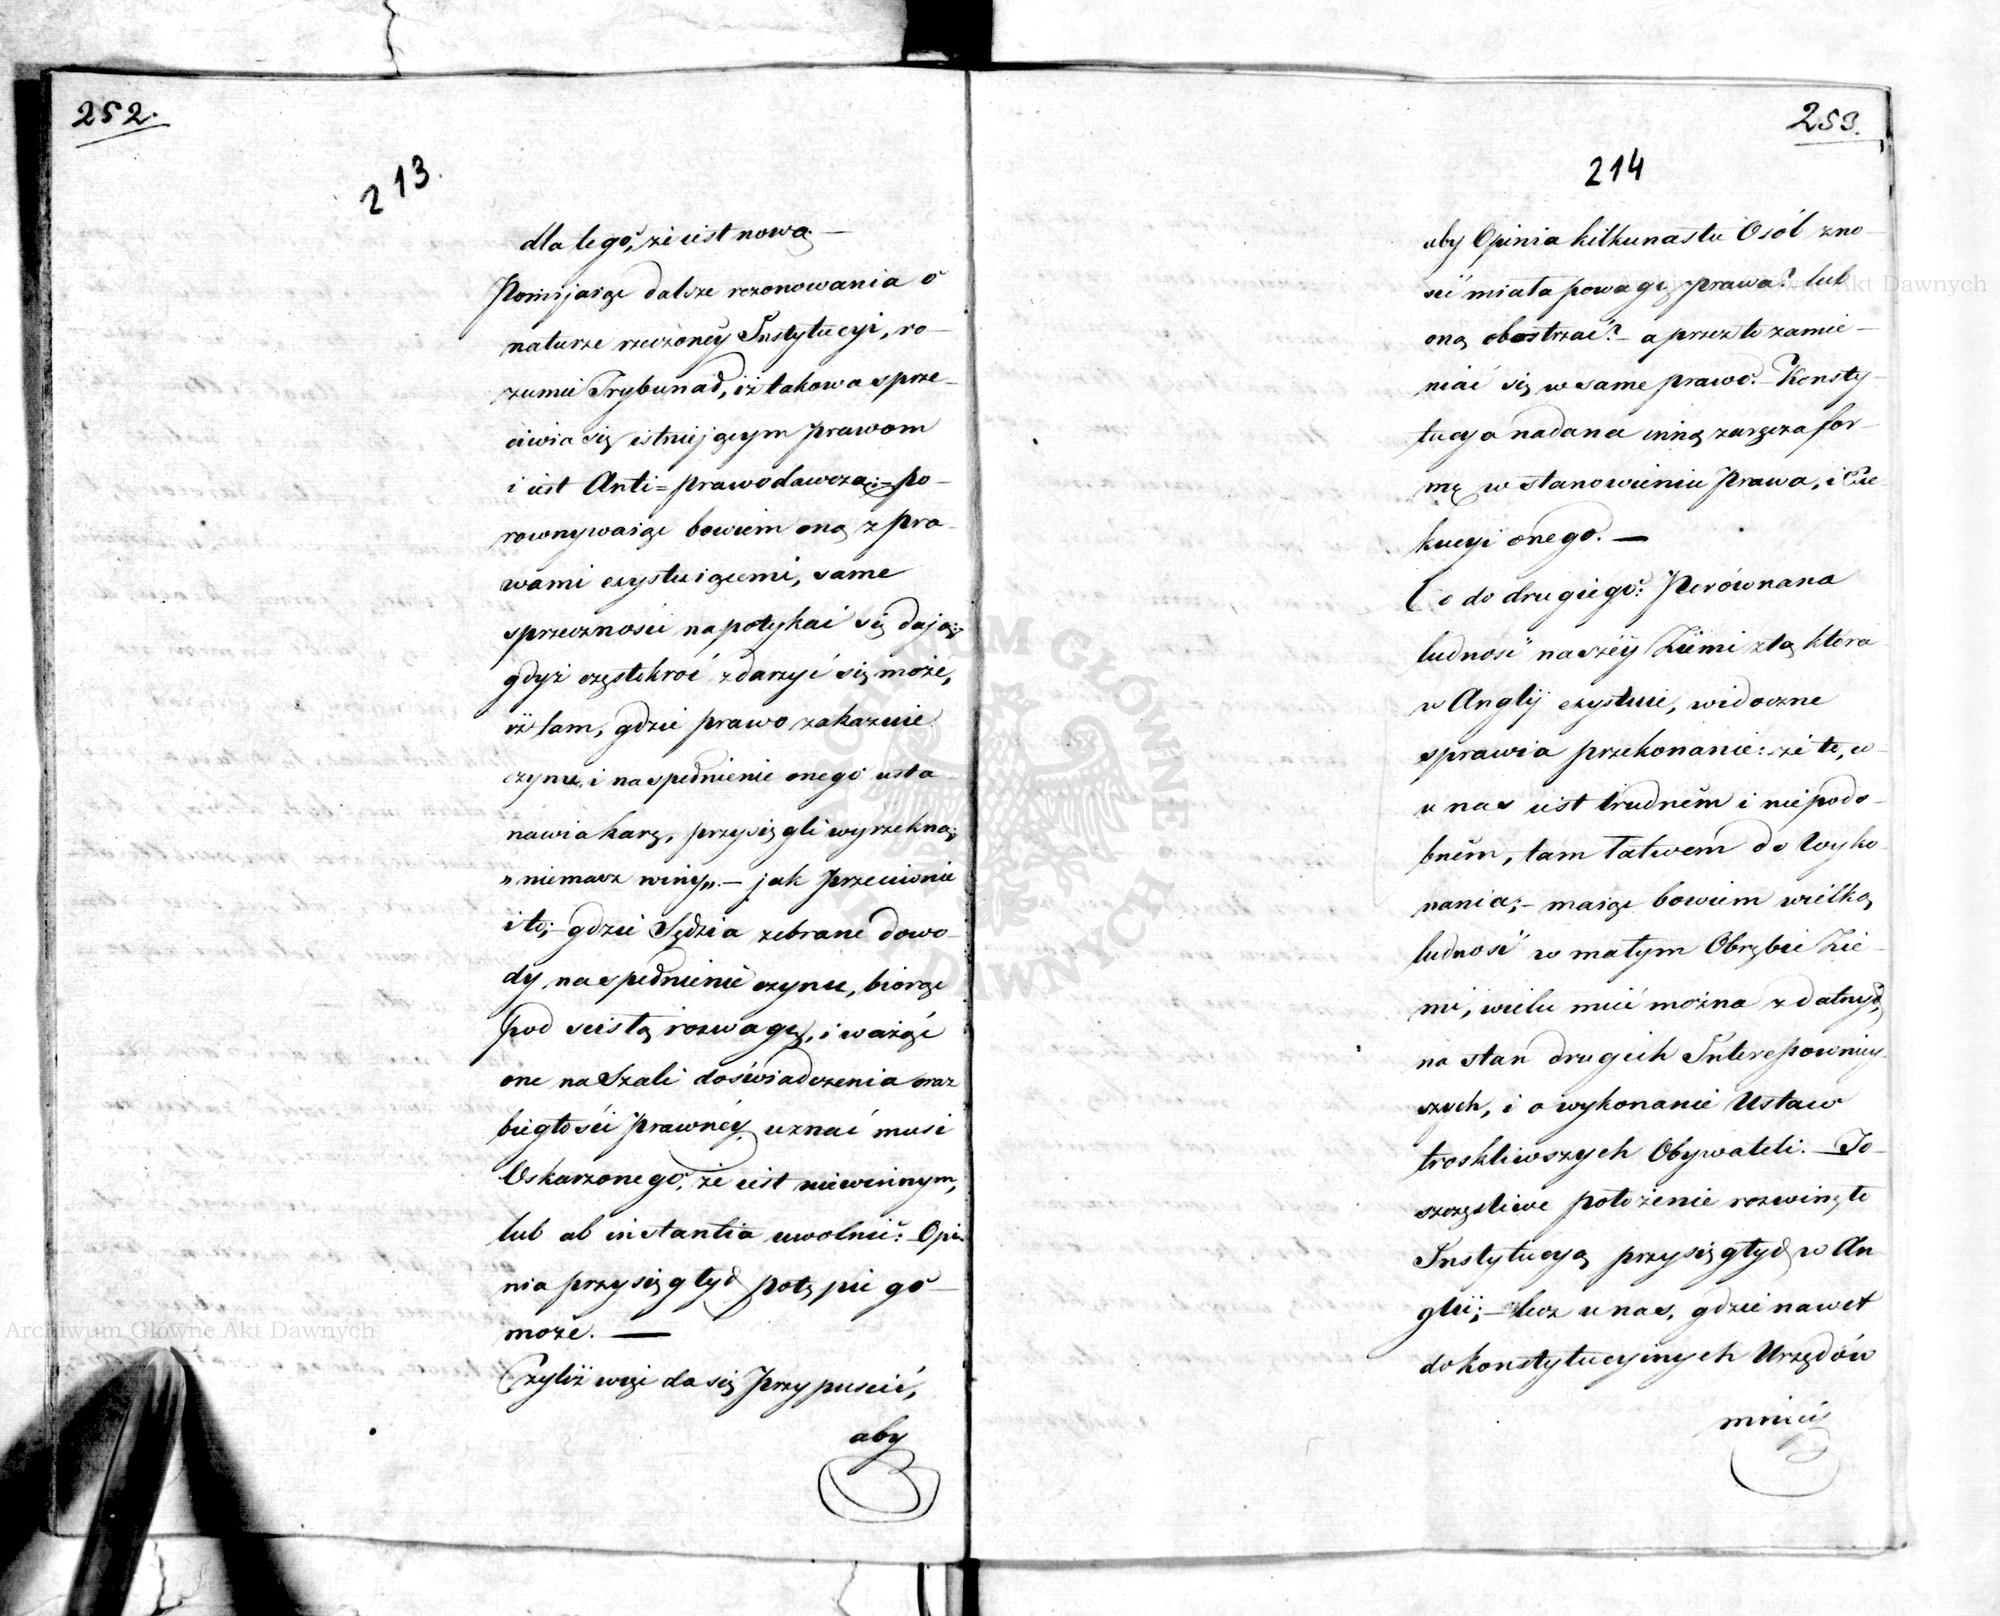 252.
213.
dla tego, że iest nową —
Pomijaiąc dalsze rezonowania o
naturze rzeczoney Instytucyi, ro-
zumie Trybunał, iż takowa sprze-
ciwia się istniejącym prawom
i iest Anti=prawodawczą;= po-
rownywaiąc bowiem oną z pra-
wami exystuiącemi, same
sprzeczności napotykać się dają;
gdyż częstokroć zdarzyć się może,
iż tam, gdzie prawo zakazuie
czynu, i na spełnienie onego usta-
nawia karę, przysięgli wyrzekną;
„niemasz winy„ — jak przeciwnie
i to; — gdzie Sędzia zebrane dowo-
dy na spełnienie czynu, biorąc
pod scisłą rozwagę, i ważąc
one na Szali doświadczenia oraz
biegłości prawnéy, uznać musi
Oskarzonego, że iest niewinnym,
lub ab instantia uwolnić: Opi-
nia przysięgłych potępić go
może. —
Czyliż więc da się przypuścić,
aby
253.
214
aby Opinia kilkunastu Osób zno-
sić miała powagę prawa? lub
oną obostrzać? — a przez to zamie-
niać się w same prawo. — Konsty-
tucya nadana inną zaręcza for-
mę w stanowieniu Prawa, i Exe
kucyi onego. —
Co do drugiego: Porównana
ludność naszéy Ziemi z tą która
w Anglij exystuie, widoczne
sprawia przekonanie: że to, co
u nas iest trudném i niepodo-
bném, tam łatwem do Wyko-
nania; — maiąc bowiem wielką
ludność w małym Obrębie Zie-
mi, wielu mieć można zdatnych
na stan drugich
szych, i o wykonanie Ustaw
troskliwszych Obywateli. — To
szczęśliwe położenie rozwinęło
Instytucyą przysięgłych w An
glii; — lecz u nas, gdzie nawet
do konstytucyinych Urzędów